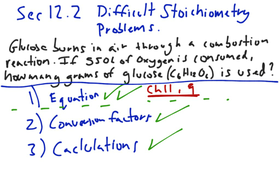 Sec 12.2 Difficult Stoichiometry
Problems.
Glucose burns in air through a combustion
reaction. If 550L of Oxygen is consumed,
how many grams of glucose (C6H12O6) is used?
1) Equation Ch 11, 9
2) Conversion factors
3) Caclulations